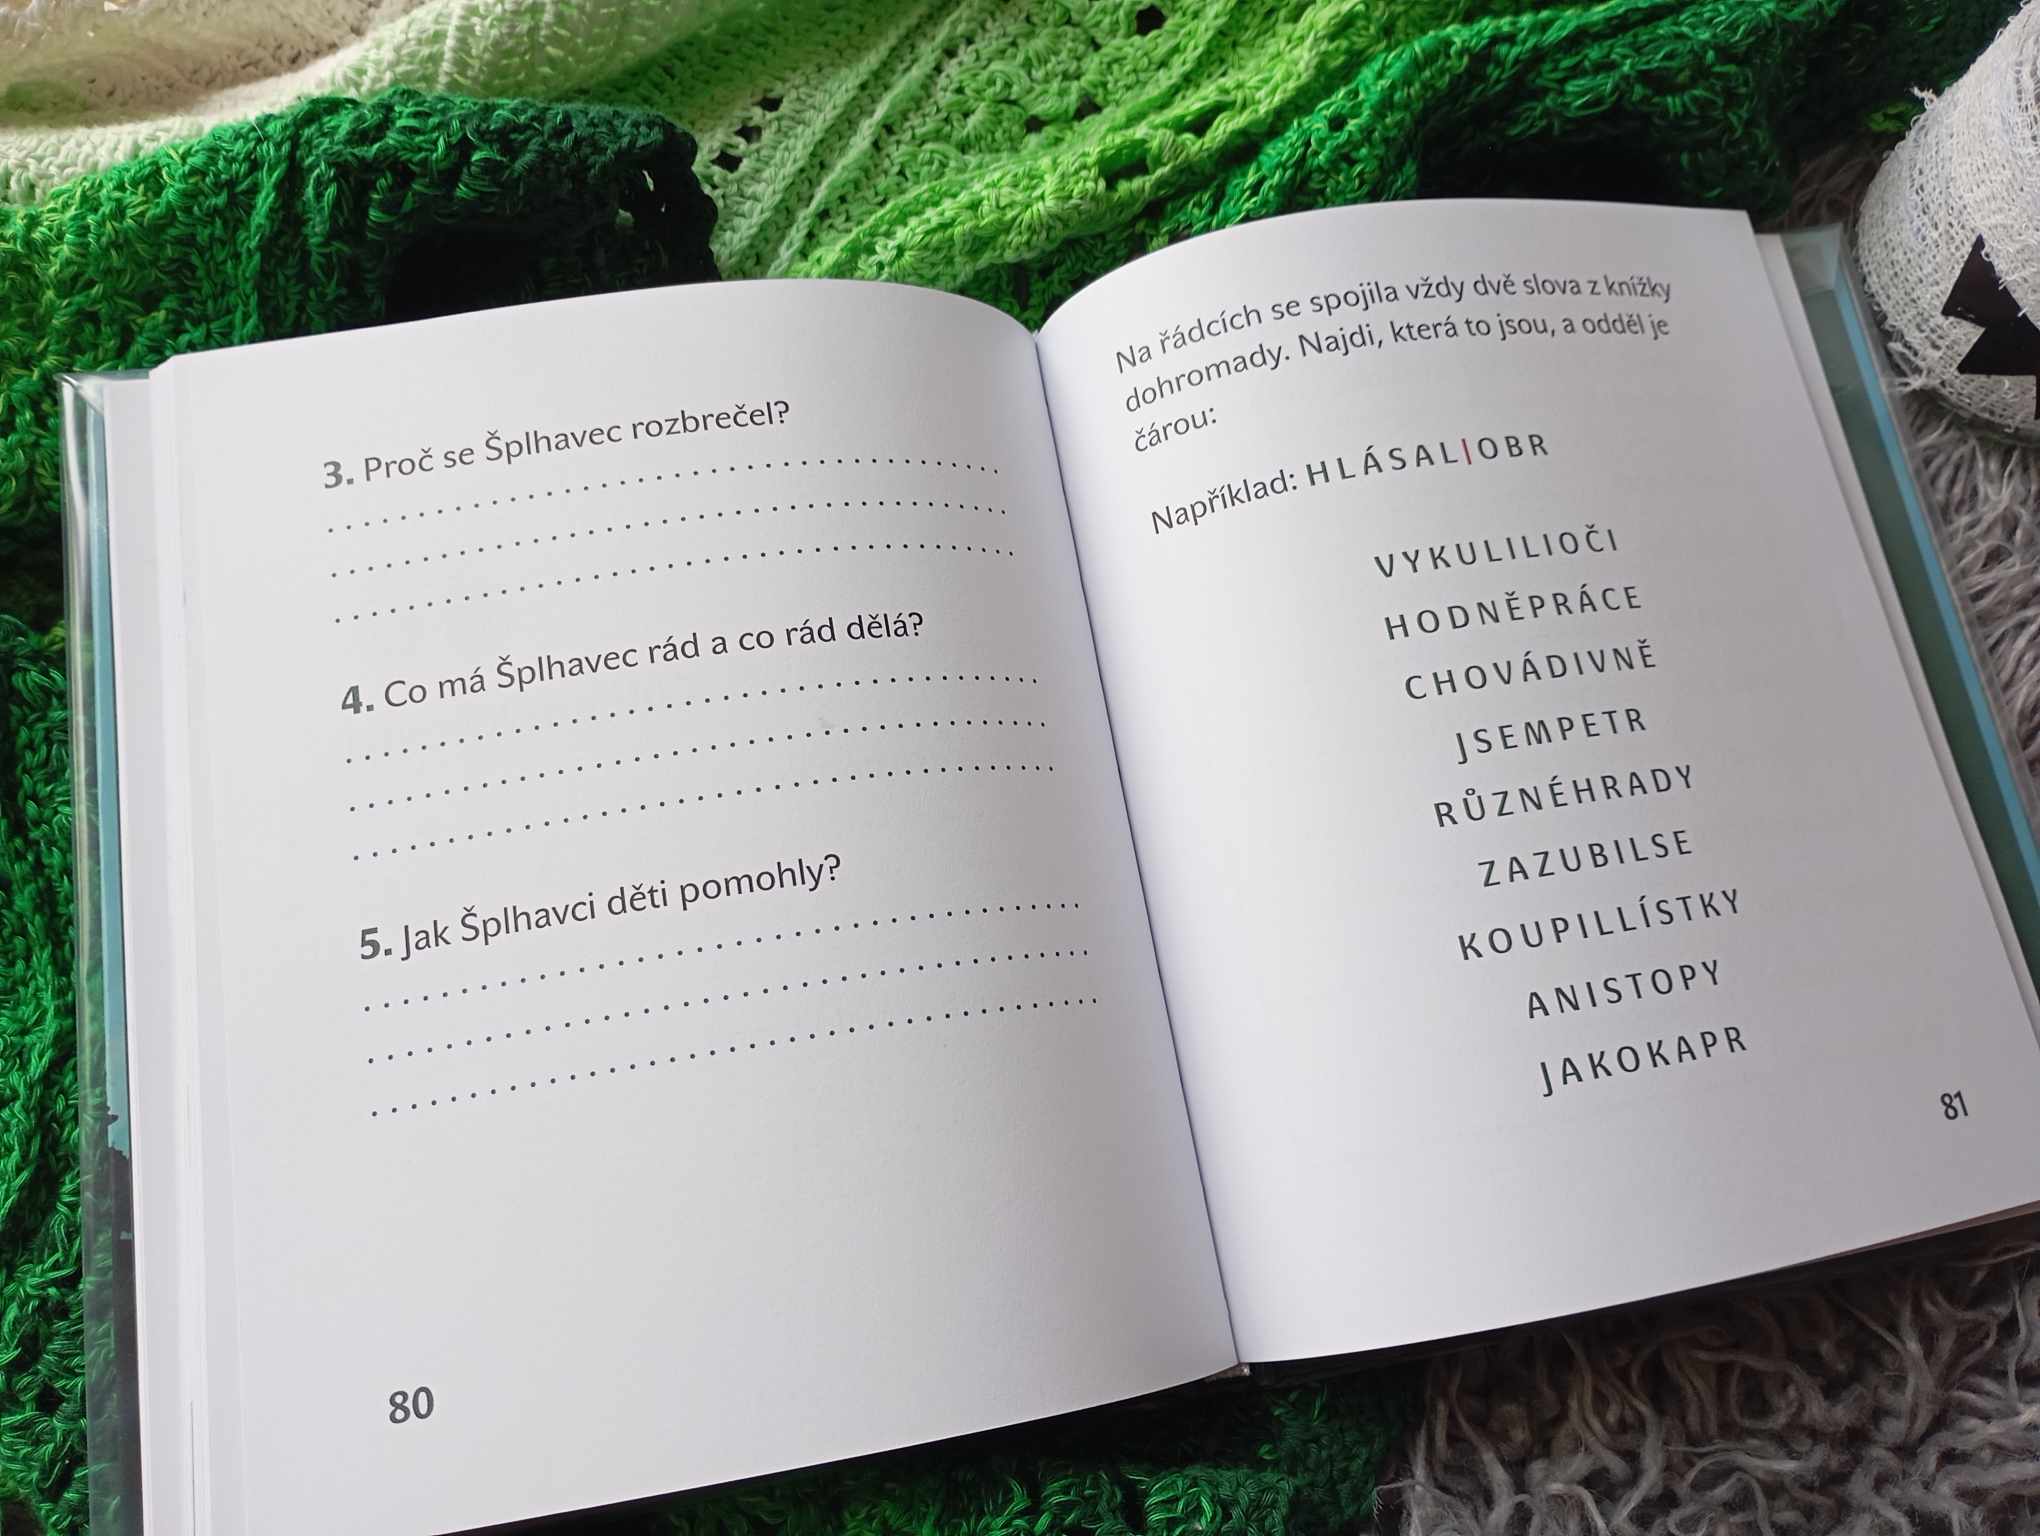 3. Proč se Šplhavec rozbrečel?
4. Co má Šplhavec rád a co rád dělá?
5. Jak Šplhavci děti pomohly?
80
Na řádcích se spojila vždy dvě slova z knížky
dohromady. Najdi, která to jsou, a odděl je
čárou:
Například: HLÁSAL|OBR
VYKULILIOČI
HODNĚPRÁCE
CHOVÁDIVNĚ
JSEMPETR
RŮZNÉHRADY
ZAZUBILSE
KOUPILLÍSTKY
ANISTOPY
JAKOKAPR
81